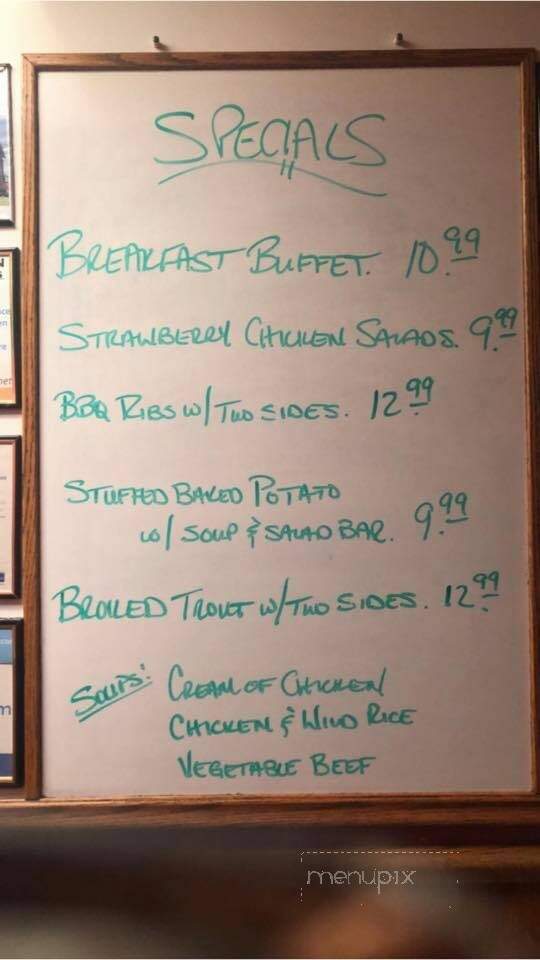 SPECIALS
BREAKFAST BUFFET. 10.99
STRAWBERRY CHICKEN SALADS. 9.99
BBQ RIBS W/ TWO SIDES. 12.99
STUFFED BAKED POTATO
W/ SOUP & SALAD BAR. 9.99
BROILED TROUT W/ TWO SIDES. 12.99
SOUPS: CREAM OF CHICKEN
CHICKEN & WILD RICE
VEGETABLE BEEF
menupix